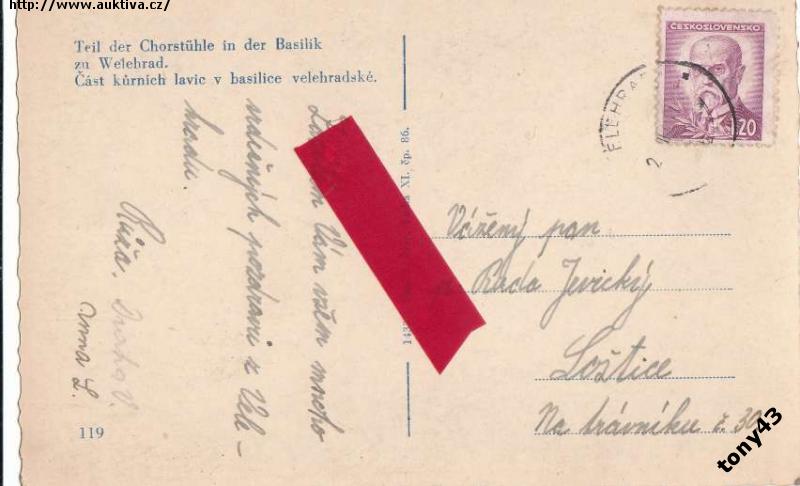 http://www.auktiva.cz/
Teil der Chorstühle in der Basilik
zu Welehrad.
Část kůrních lavic v basilice velehradské.
Vám všem mnoho
srdečných pozdravů z Vele-
hradu.
Růža.
Anna L.
119
XI, čp. 86.
ČESKOSLOVENSKO
1.20
Vážený pan
Rada Jevický
Loštice
Na trávníku č. 30
tony43